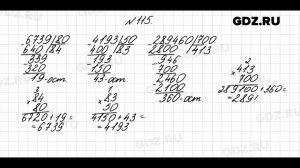 GDZ.RU
№ 115.
6739|80 4193|50 289460|700
640 |84 400 |83 2800 |413
-339 -193 -946
320 150 700
19-ост. 43-ост. 2460
2100
360-ост.
3 1 2
×84 ×83 ×413
80 50 700
6720+19= 4150+43= 289100+360=
=6739 =4193 =2894
GDZ.RU